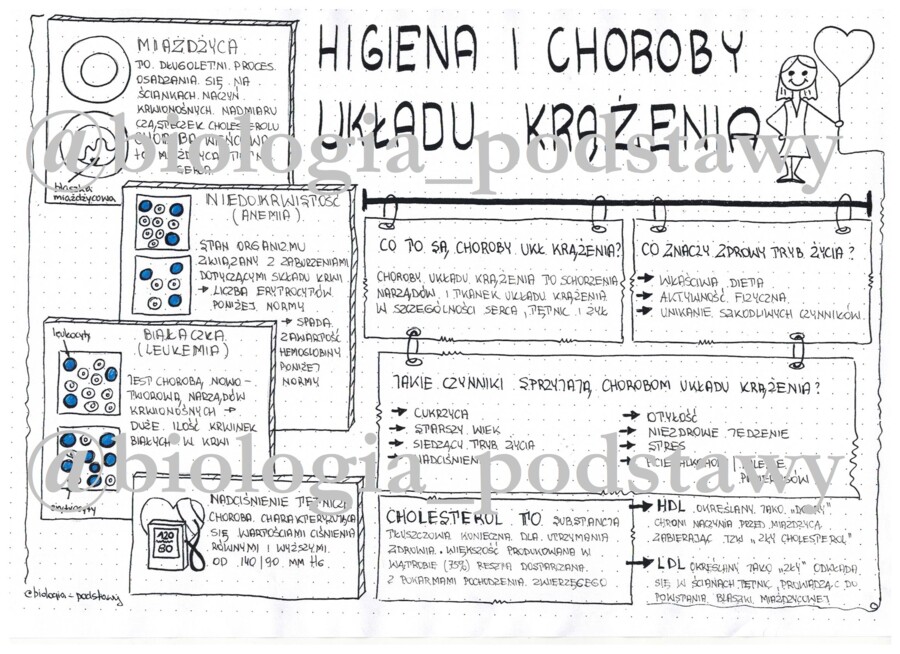 HIGIENA I CHOROBY
UKŁADU KRĄŻENIA
MIAŻDŻYCA
TO DŁUGOLETNI PROCES
OSADZANIA SIĘ NA
ŚCIANKACH NACZYŃ
KRWIONOŚNYCH NADMIARU
CZĄSTECZEK CHOLESTEROLU
CHOROBA WIEŃCOWA
TO MIAŻDŻYCA TĘTNIC
SERCA
blaszka
miażdżycowa
NIEDOKRWISTOŚĆ
(ANEMIA)
STAN ORGANIZMU
ZWIĄZANY Z ZABURZENIAMI
DOTYCZĄCYMI SKŁADU KRWI
→ LICZBA ERYTROCYTÓW
PONIŻEJ NORMY
→ SPADA
ZAWARTOŚĆ
HEMOGLOBINY
PONIŻEJ
NORMY
BIAŁACZKA
(LEUKEMIA)
leukocyty
JEST CHOROBĄ NOWO-
TWOROWĄ NARZĄDÓW
KRWIONOŚNYCH →
DUŻE ILOŚĆ KRWINEK
BIAŁYCH W KRWI
erytrocyty
NADCIŚNIENIE TĘTNICZE
CHOROBA CHARAKTERYZUJĄCA
SIĘ WARTOŚCIAMI CIŚNIENIA
RÓWNYMI I WYŻSZYMI
OD 140/90 MM HG.
120
80
@biologia_podstawy
CO TO SĄ CHOROBY UKŁ. KRĄŻENIA?
CHOROBY UKŁADU KRĄŻENIA TO SCHORZENIA
NARZĄDÓW I TKANEK UKŁADU KRĄŻENIA
W SZCZEGÓLNOŚCI SERCA, TĘTNIC I ŻYŁ
CO ZNACZY ZDROWY TRYB ŻYCIA?
→ WŁAŚCIWA DIETA
→ AKTYWNOŚĆ FIZYCZNA
→ UNIKANIE SZKODLIWYCH CZYNNIKÓW
JAKIE CZYNNIKI SPRZYJAJĄ CHOROBOM UKŁADU KRĄŻENIA?
→ CUKRZYCA
→ STARSZY WIEK
→ SIEDZĄCY TRYB ŻYCIA
→ NADCIŚNIENIE
→ OTYŁOŚĆ
→ NIEZDROWE JEDZENIE
→ STRES
→ PICIE ALKOHOLU I PALENIE
PAPIEROSÓW
CHOLESTEROL TO SUBSTANCJA
TŁUSZCZOWA KONIECZNA DLA UTRZYMANIA
ZDROWIA. WIĘKSZOŚĆ PRODUKOWANA W
WĄTROBIE (75%) RESZTA DOSTARCZANA
Z POKARMAMI POCHODZENIA ZWIERZĘCEGO
→ HDL OKREŚLANY JAKO „DOBRY"
CHRONI NACZYNIA PRZED MIAŻDŻYCĄ
ZABIERAJĄC TZW „ZŁY CHOLESTEROL"
→ LDL OKREŚLANY JAKO „ZŁY" ODKŁADA
SIĘ W ŚCIANACH TĘTNIC, PROWADZĄC DO
POWSTANIA BLASZKI MIAŻDŻYCOWEJ
@biologia_podstawy
@biologia_podstawy